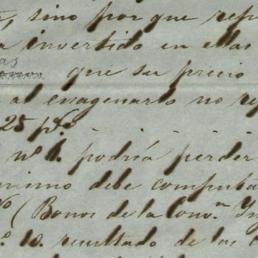 sino por que rep
a invertido en ellas
as
que su precio
al enagenarlo no re
25 p%
nº 1. podría perder
nimo debe computa
% (Bonos de la Conv.ⁿ In
º 10. resultado de las